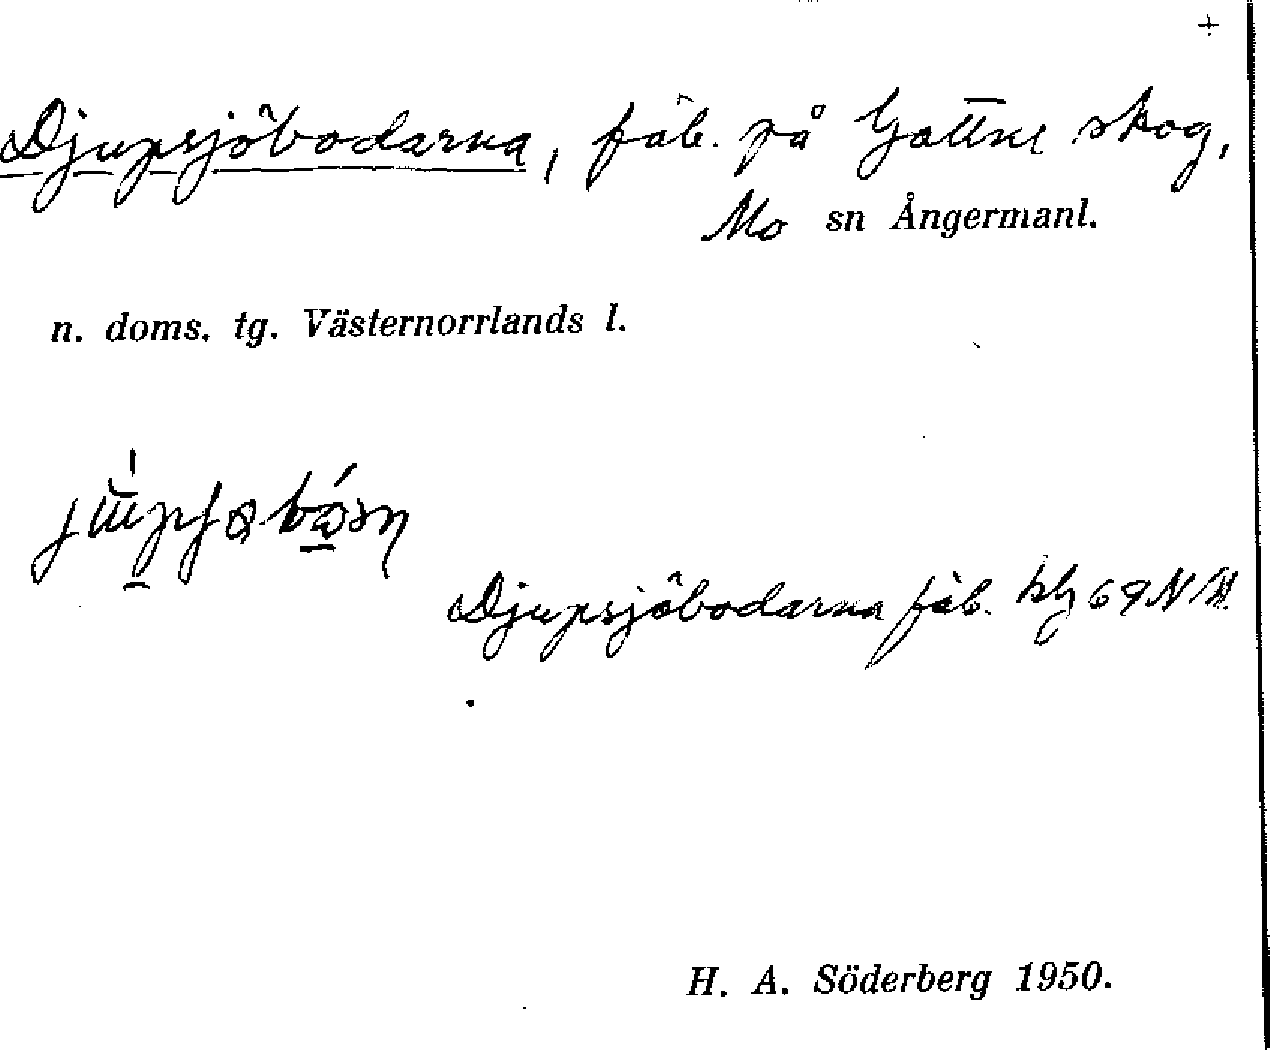 +
Djupsjöbodarna, fäb. på Gottne skog,
Mo sn Ångermanl.
n. doms. tg. Västernorrlands l.
Djupsjöbodarna fäb. 69 NV
H. A. Söderberg 1950.